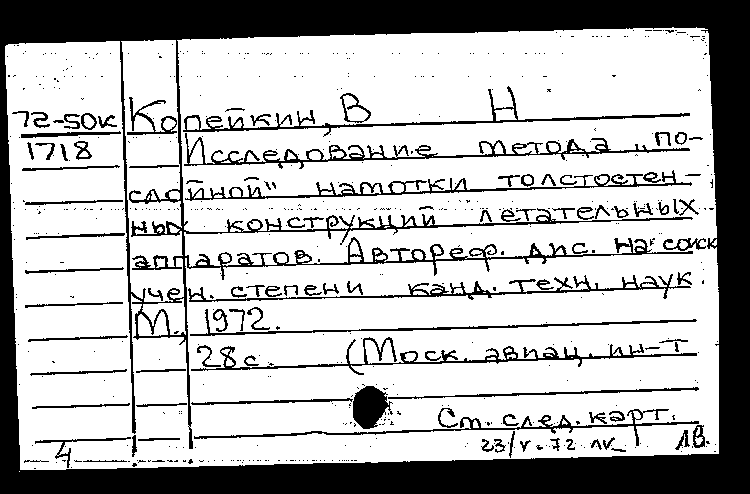 72-50к Копейкин, В Н
1718 Исследование метода „по-
слойной" намотки толстостен-
ных конструкций летательных
аппаратов. Автореф. дис. на соиск
учен. степени канд. техн. наук.
М., 1972.
28с. (Моск. авиац. ин-т
См. след. карт.
23/V-72 лк ЛВ.
4